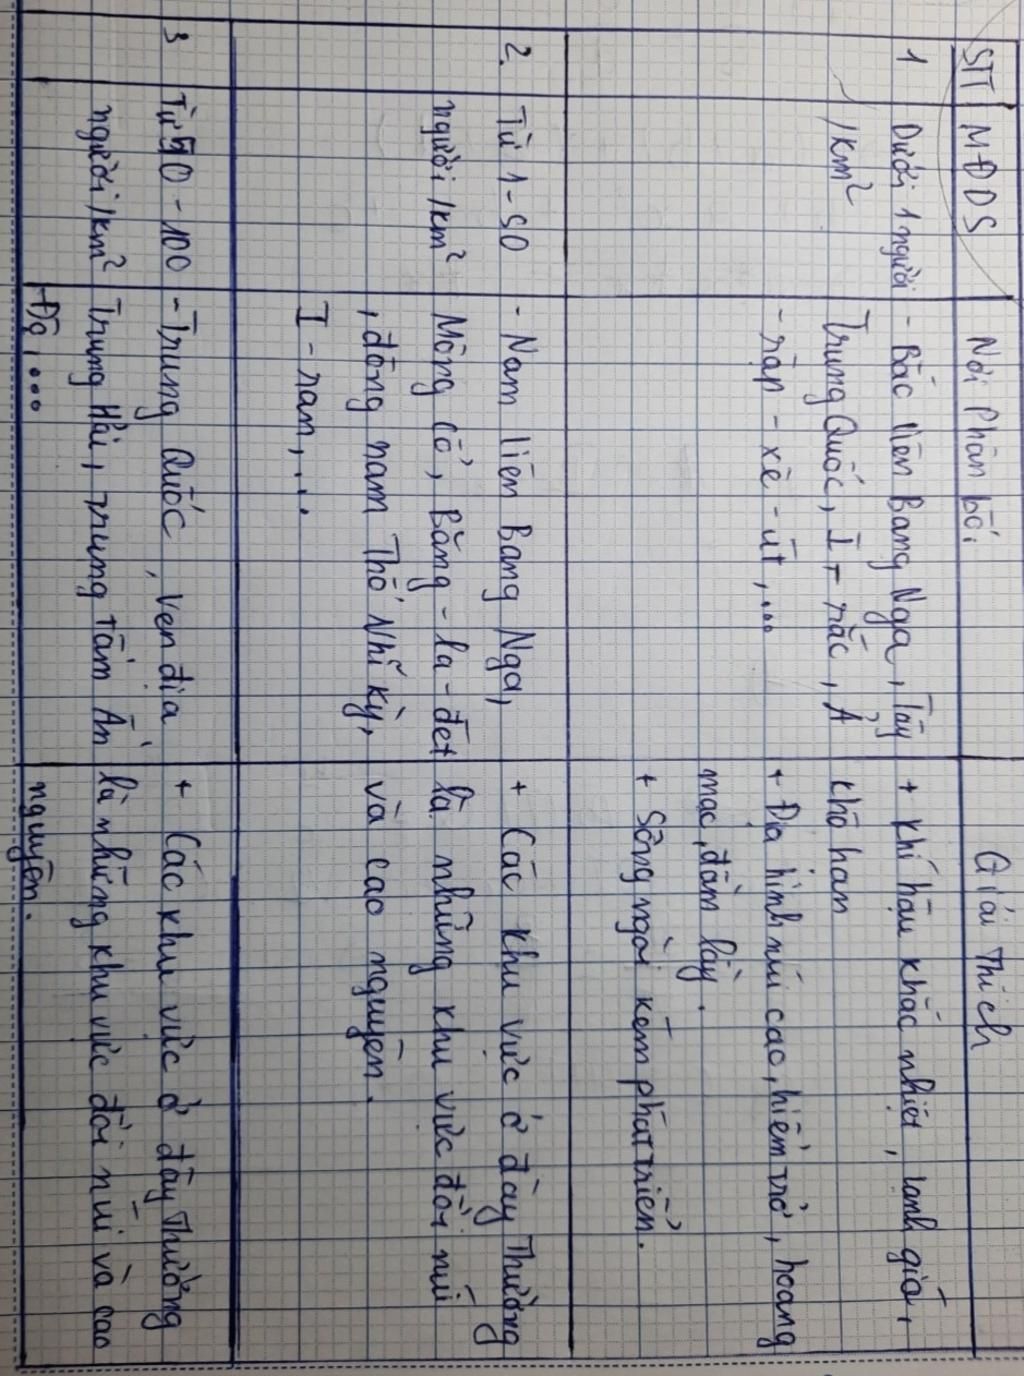 STT MĐDS Nơi Phân bố Giải Thích
1 Dưới 1 người - Bắc liên Bang Nga, Tây + Khí hậu khắc nhiệt, lạnh giá,
/km² Trung Quốc, I-rắc, Ả khô hạn
- rập - xê - út, ... + Địa hình núi cao, hiểm trở, hoang
mạc, đầm lầy.
+ Sông ngòi kém phát triển.
2. Từ 1-50 - Nam liên Bang Nga, + Các khu vực ở đây Thường
người/km² Mông Cổ, Băng-la-đet là những khu vực đồi núi
, đông nam Thổ Nhĩ Kỳ, và cao nguyên.
I-ran, ...
3 Từ 50-100 - Trung Quốc, ven địa + Các khu vực ở đây Thường
người/km² Trung Hải, trung tâm Ấn là những khu vực đồi núi và cao
Độ, ... nguyên.